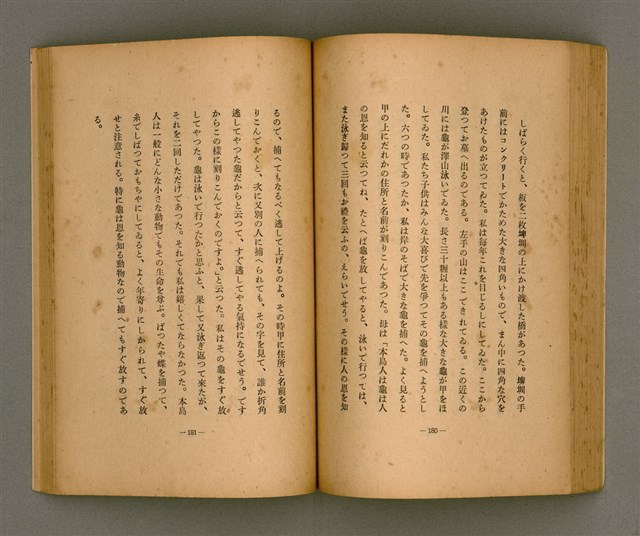 しばらく行くと、板を二枚埤圳の上にかけ渡した橋があつた。埤圳の手
前にはコンクリートでかためた大きな四角いもので、まん中に四角な穴を
あけたものが立つてゐた。私は毎年これを目じるしにしてゐだ。ここから
登つてお墓へ出るのである。左手の山はここできれてゐる。この近くの
川には龜が澤山泳いでゐた。長さ三十糎以上もある樣な大きな龜が甲をほ
してゐた。私たち子供はみんな大喜びで先を爭つてその龜を捕へようとし
た。六つの時であつたか、私は岸のそばで大きな龜を捕へた。よく見ると
甲の上にだれかの住所と名前が刻りこんであつた。母は「本島人は龜は人
の恩を知ると云つてね、たとへば龜を放してやると、泳いで行つては、
また泳ぎ歸つて三回もお禮を云ふの、えらいでせう。その樣に人の恩を知
—180—
るので、捕へてもなるべく逃して上げるのよ。その時甲に住所と名前を刻
りこんでおくと、次に又別の人に捕へられても、その字を見て、誰か折角
逃してやつた龜だからと云つて、すぐ逃してやる氣持になるでせう。です
からこの樣に刻りこんでおくのですよ。」と云つた。私はその龜をすぐ放
してやつた。龜は泳いで行つたかと思ふと、果して又泳ぎ返つて來たが、
それを二回しただけであつた。それでも私は嬉しくてならなかつた。本島
人は一般にどんな小さな動物でもその生命を尊ぶ。ばつたや蝶を捕つて、
糸でしばつておもちやにしてゐると、よく年寄りにしかられて、すぐ放
せと注意される。特に龜は恩を知る動物なので捕へてもすぐ放すのであ
る。
—181—